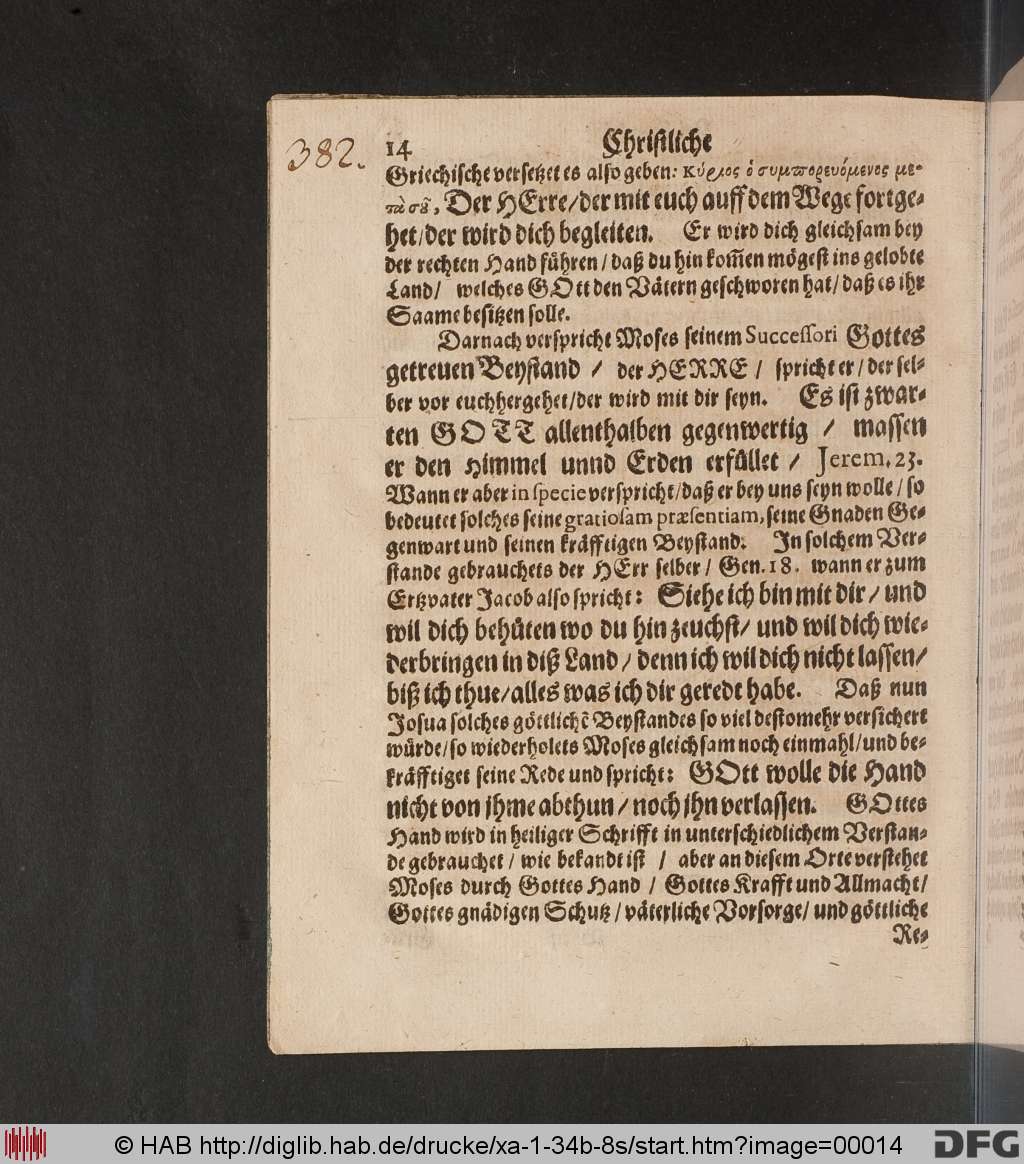 382.
14 Christliche
Griechische versetzet es also geben: Κύριος ὁ συμπορευόμενος με-
τὰ σοῦ, Der HErre/der mit euch auff dem Wege fortge-
het/der wird dich begleiten. Er wird dich gleichsam bey
der rechten Hand führen/ daß du hin kom̃en mögest ins gelobte
Land/ welches GOtt den Vätern geschworen hat/ daß es ihr
Saame besitzen solle.
Darnach verspricht Moses seinem Successori Gottes
getreuen Beystand / der HERRE / spricht er/ der sel-
ber vor euch hergehet/der wird mit dir seyn. Es ist zwar-
ten GOTT allenthalben gegenwertig / massen
er den Himmel unnd Erden erfüllet / Jerem. 23.
Wann er aber in specie verspricht/daß er bey uns seyn wolle/ so
bedeutet solches seine gratiosam præsentiam, seine Gnaden Ge-
genwart und seinen kräfftigen Beystand. In solchem Ver-
stande gebrauchets der HErr selber/ Gen. 18. wann er zum
Ertzvater Jacob also spricht: Siehe ich bin mit dir/ und
wil dich behüten wo du hin zeuchst/ und wil dich wie-
derbringen in diß Land/ denn ich wil dich nicht lassen/
biß ich thue/alles was ich dir geredt habe. Daß nun
Josua solches göttlichẽ Beystandes so viel destomehr versichert
würde/so wiederholets Moses gleichsam noch einmahl/und be-
kräfftiget seine Rede und spricht: GOtt wolle die Hand
nicht von jhme abthun/ noch jhn verlassen. GOttes
Hand wird in heiliger Schrifft in unterschiedlichem Verstan-
de gebrauchet/ wie bekandt ist / aber an diesem Orte verstehet
Moses durch Gottes Hand / Gottes Krafft und Allmacht/
Gottes gnädigen Schutz/ väterliche Vorsorge/ und göttliche
Re-
© HAB http://diglib.hab.de/drucke/xa-1-34b-8s/start.htm?image=00014
DFG